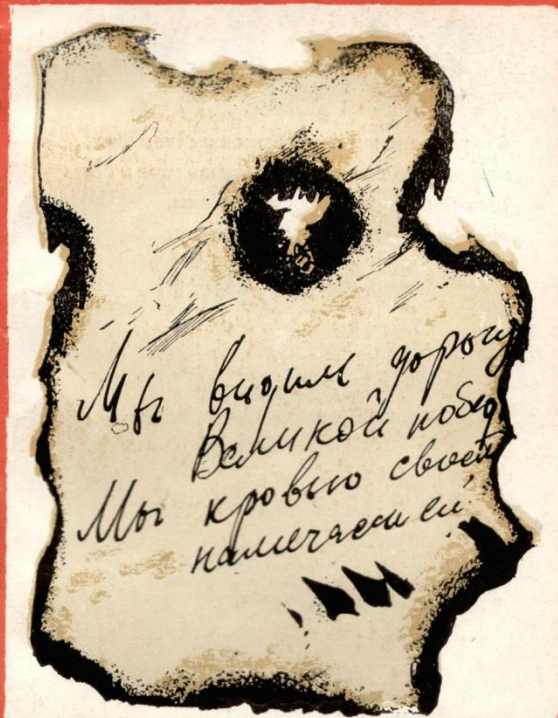 Мы видим дорогу
Великой побед
Мы кровью своей
намечаем